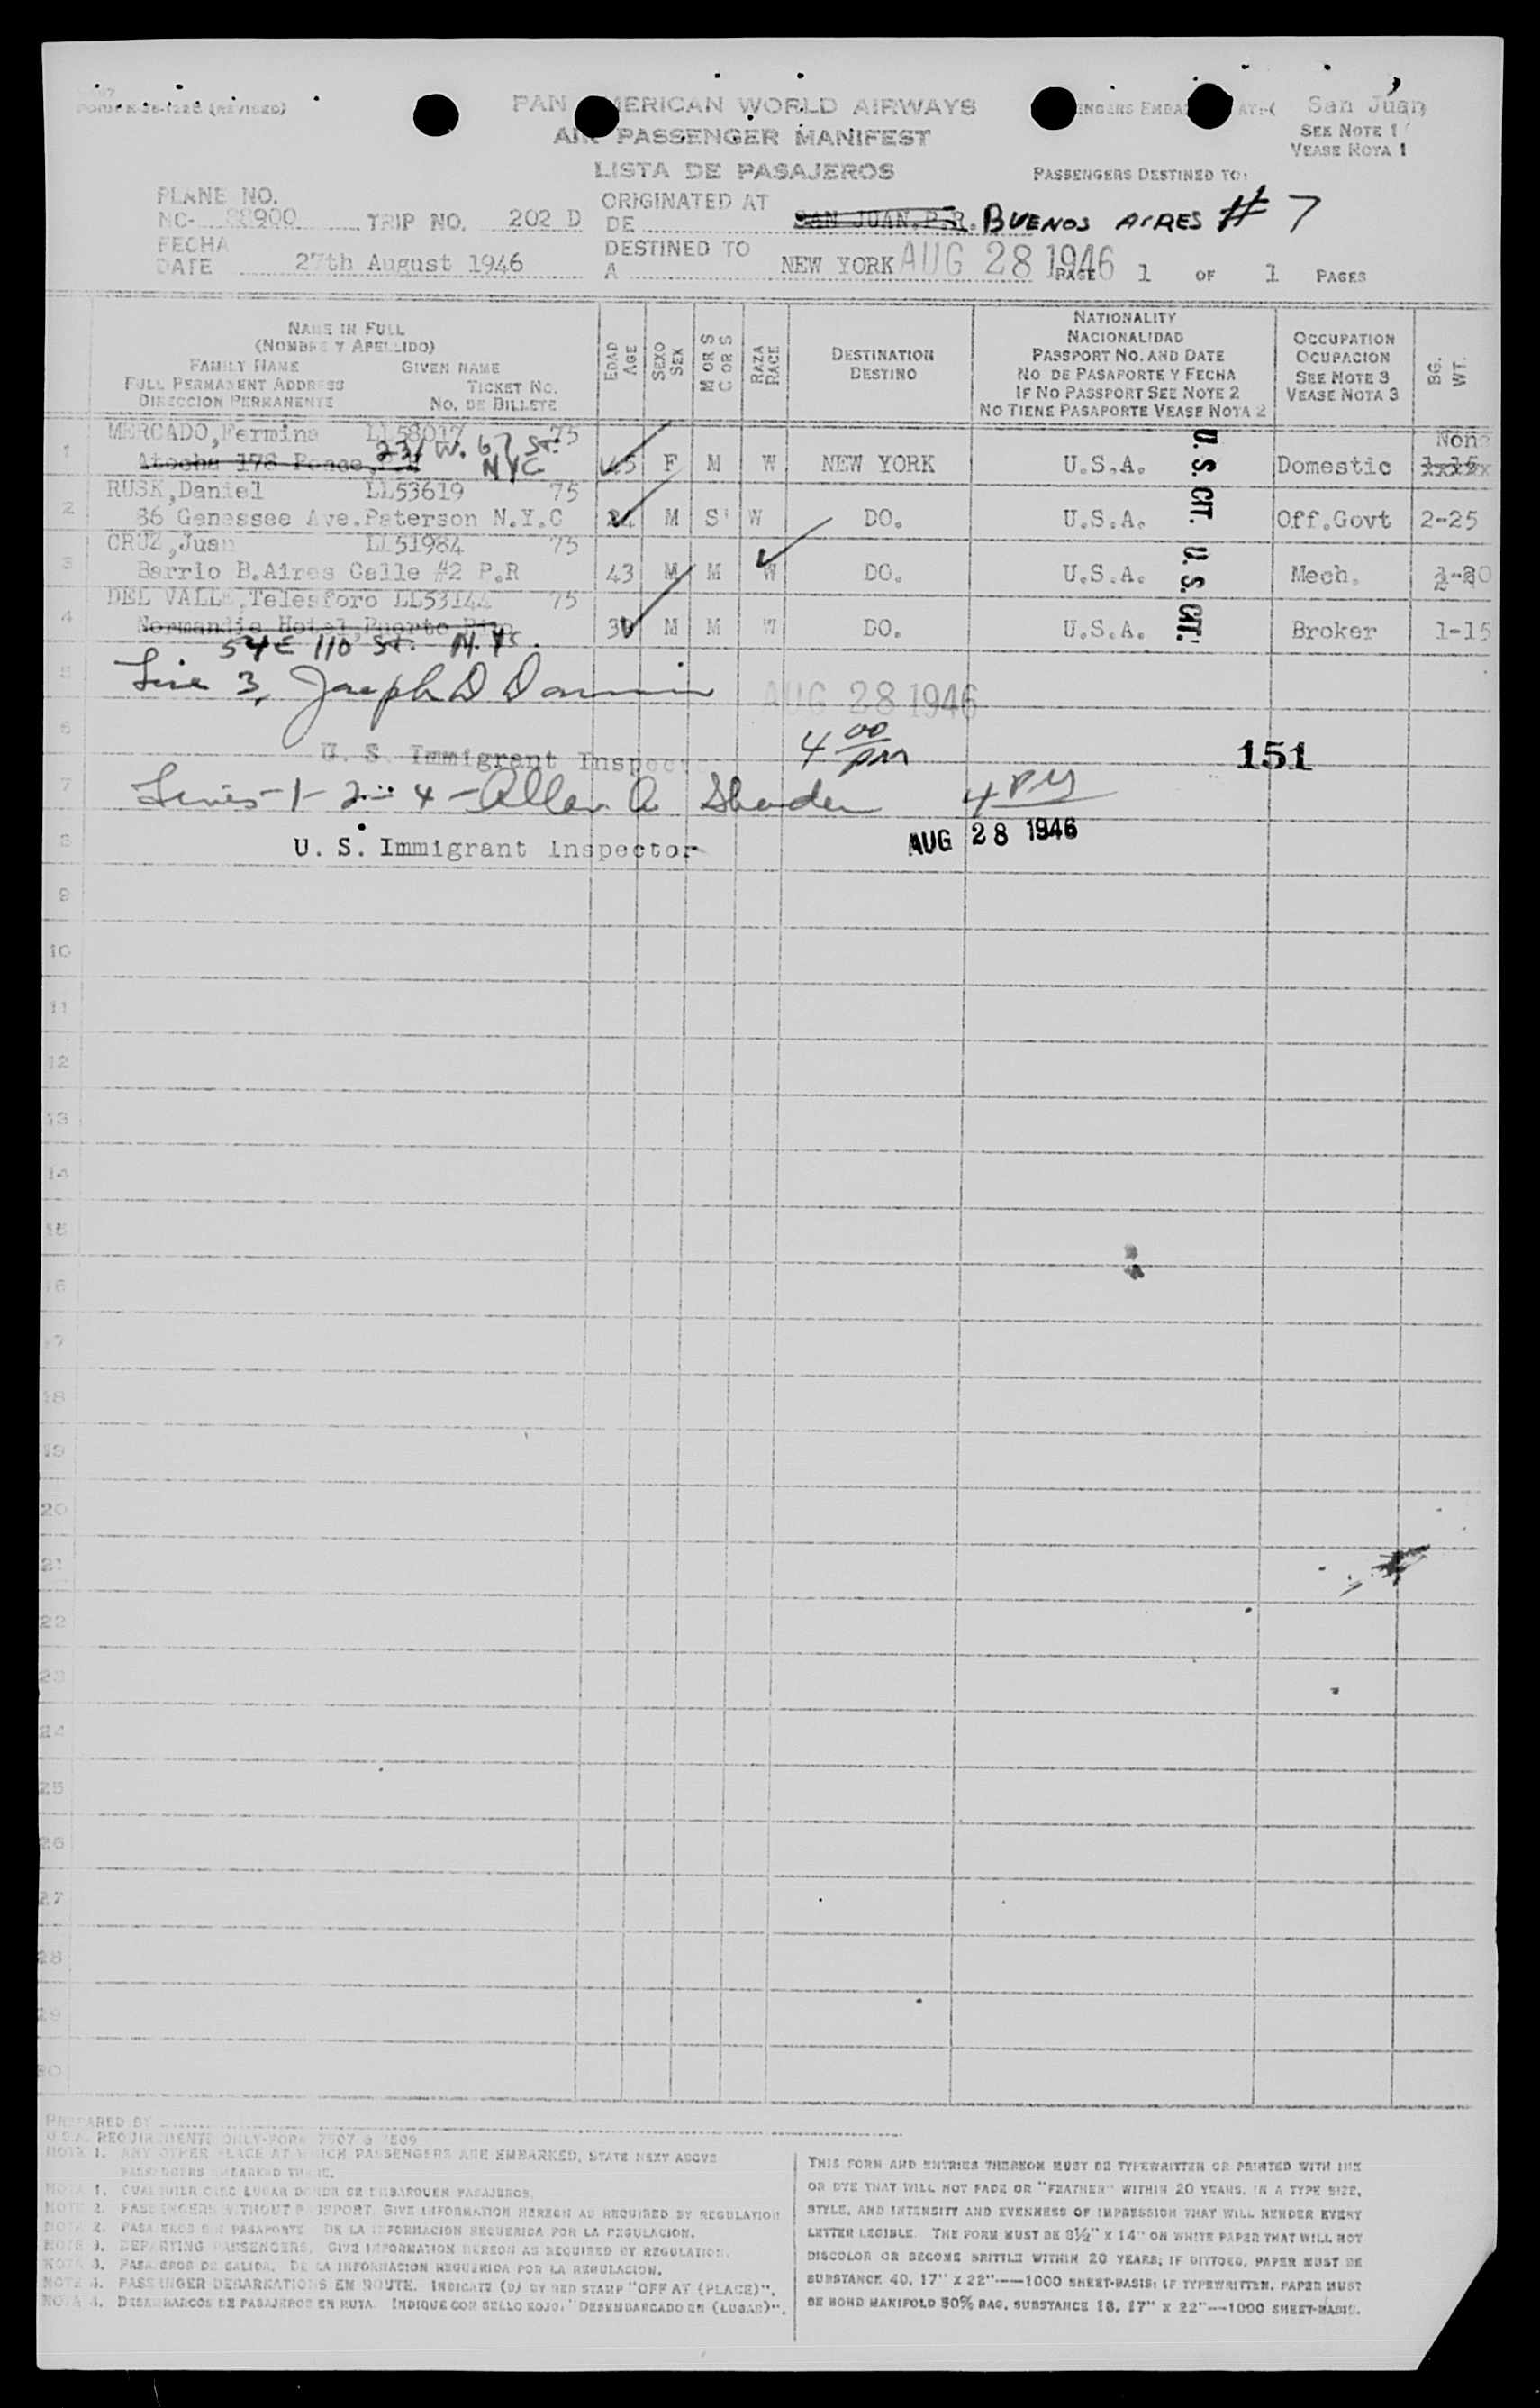 FORM R-38-122S (REVISED)
PAN AMERICAN WORLD AIRWAYS
AIR PASSENGER MANIFEST
LISTA DE PASAJEROS
San Juan
SEE NOTE 1
VEASE NOTA 1
PASSENGERS DESTINED TO:
PLANE NO.
NC- 88900 TRIP NO. 202 D
ORIGINATED AT
DE SAN JUAN.P.R. BUENOS AIRES # 7
FECHA
DATE 27th August 1946
DESTINED TO
A NEW YORK AUG 28 1946 PAGE 1 OF 1 PAGES
NAME IN FULL
(NOMBRE Y APELLIDO)
FAMILY NAME GIVEN NAME
FULL PERMANENT ADDRESS TICKET NO.
DIRECCION PERMANENTE NO. DE BILLETE
EDAD AGE
SEXO SEX
M OR S
C OR S
RAZA RACE
DESTINATION
DESTINO
NATIONALITY
NACIONALIDAD
PASSPORT NO. AND DATE
NO DE PASAPORTE Y FECHA
IF NO PASSPORT SEE NOTE 2
NO TIENE PASAPORTE VEASE NOTA 2
OCCUPATION
OCUPACION
SEE NOTE 3
VEASE NOTA 3
BG. WT.
1 MERCADO,Fermina LL58017 75 None
Atocha 178 Ponce, 231 W. 67 ST. NYC 45 F M W NEW YORK U.S.A. Domestic
2 RUSK,Daniel LL53619 75
86 Genessee Ave.Paterson N.Y.C 24 M S W DO. U.S.A. Off.Govt 2-25
3 CRUZ,Juan LL51984 75
Barrio B.Aires Calle #2 P.R 43 M M W DO. U.S.A. Mech.
4 DEL VALLE,Telesforo LL53144 75
Normandie Hotel,Puerto Rico M M W DO. U.S.A. Broker 1-15
54 E 110 ST. N.YC.
U. S. CIT. U. S. CIT.
5 Line 3, Joseph D AUG 28 1946
6 U. S. Immigrant Inspec 4 00 PM 151
7 Lines-1-2-4-Allen A 4 PM
8 U. S. Immigrant Inspector AUG 28 1946
9
10
11
12
13
14
15
16
17
18
19
20
21
22
23
24
25
26
27
28
29
30
PREPARED BY
U.S.A. REQUIREMENTS ONLY-FORM 7507 & 7509
NOTE 1. ANY OTHER PLACE AT WHICH PASSENGERS ARE EMBARKED, STATE NEXT ABOVE
PASSENGERS EMBARKED THERE.
NOTA 1. CUALQUIER OTRO LUGAR DONDE SE EMBARQUEN PASAJEROS.
NOTE 2. PASSENGERS WITHOUT PASSPORT. GIVE INFORMATION HEREON AS REQUIRED BY REGULATION
NOTA 2. PASAJEROS SIN PASAPORTE. DE LA INFORMACION REQUERIDA POR LA REGULACION.
NOTE 3. DEPARTING PASSENGERS. GIVE INFORMATION HEREON AS REQUIRED BY REGULATION.
NOTA 3. PASAJEROS DE SALIDA. DE LA INFORMACION REQUERIDA POR LA REGULACION.
NOTE 4. PASSENGER DEBARKATIONS EN ROUTE. INDICATE (D) BY RED STAMP "OFF AT (PLACE)".
NOTA 4. DESEMBARCOS DE PASAJEROS EN RUTA. INDIQUE CON SELLO ROJO, "DESEMBARCADO EN (LUGAR)".
THIS FORM AND ENTRIES THEREON MUST BE TYPEWRITTEN OR PRINTED WITH INK
OR DYE THAT WILL NOT FADE OR "FEATHER" WITHIN 20 YEARS, IN A TYPE SIZE,
STYLE, AND INTENSITY AND EVENNESS OF IMPRESSION THAT WILL RENDER EVERY
LETTER LEGIBLE. THE FORM MUST BE 8½" X 14" ON WHITE PAPER THAT WILL NOT
DISCOLOR OR BECOME BRITTLE WITHIN 20 YEARS; IF DITTOED, PAPER MUST BE
SUBSTANCE 40, 17" X 22"—1000 SHEET-BASIS; IF TYPEWRITTEN, PAPER MUST
BE BOND MANIFOLD 50% RAG, SUBSTANCE 16, 17" X 22"—1000 SHEET-BASIS.